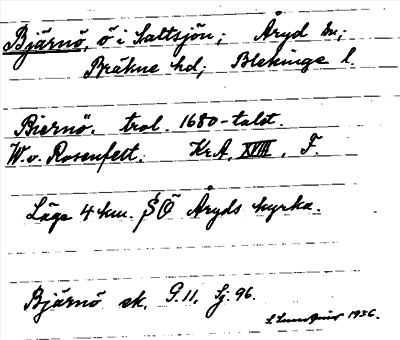 Bjärnö, ö i Saltsjön; Åryd sn;
Bräkne hd; Blekinge l.
Biernö. trol. 1680-talet.
W. v. Rosenfelt. KrA, XVIII, F.
Läge 4 km. SÖ Åryds kyrka.
Bjärnö ek. G.11. Sj. 96.
1936.